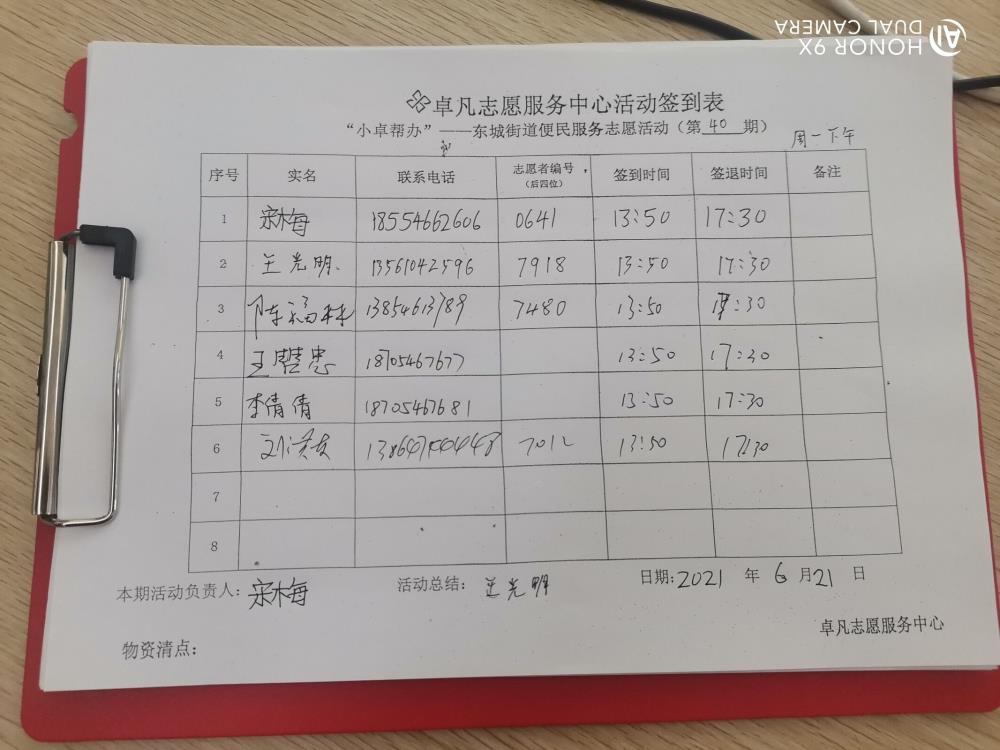 HONOR 9X
DUAL CAMERA
卓凡志愿服务中心活动签到表
“小卓帮办”——东城街道便民服务志愿活动（第 40 期）
周一下午
序号 实名 联系电话 志愿者编号（后四位） 签到时间 签退时间 备注
1 宋梅 18554662606 0641 13:50 17:30
2 王光明 13561042596 7918 13:50 17:30
3 陈福林 13854613789 7480 13:50 17:30
4 王慧忠 18705467677 13:50 17:30
5 李倩倩 18705467681 13:50 17:30
6 7012 13:50 17:30
7
8
本期活动负责人：宋梅 活动总结：王光明 日期：2021 年 6 月 21 日
卓凡志愿服务中心
物资清点：